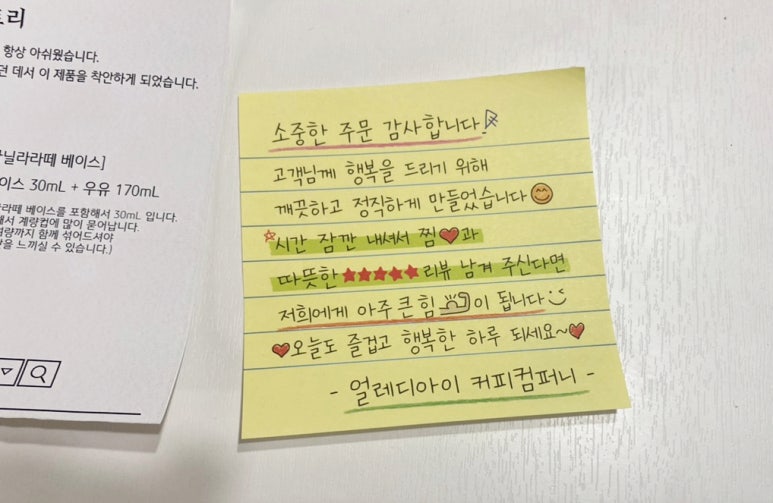 트리
항상 아쉬웠습니다.
던 데서 이 제품을 착안하게 되었습니다.
닐라라떼 베이스]
이스 30mL + 우유 170mL
라떼 베이스를 포함해서 30mL 입니다.
해서 계량컵에 많이 묻어납니다.
함께 섞어드셔야
을 느끼실 수 있습니다.]
소중한 주문 감사합니다.
고객님께 행복을 드리기 위해
깨끗하고 정직하게 만들었습니다😊
☆시간 잠깐 내셔서 찜♥과
따뜻한★★★★★리뷰 남겨 주신다면
저희에게 아주 큰 힘💪이 됩니다
♥오늘도 즐겁고 행복한 하루 되세요~♥
- 얼레디아이 커피컴퍼니 -